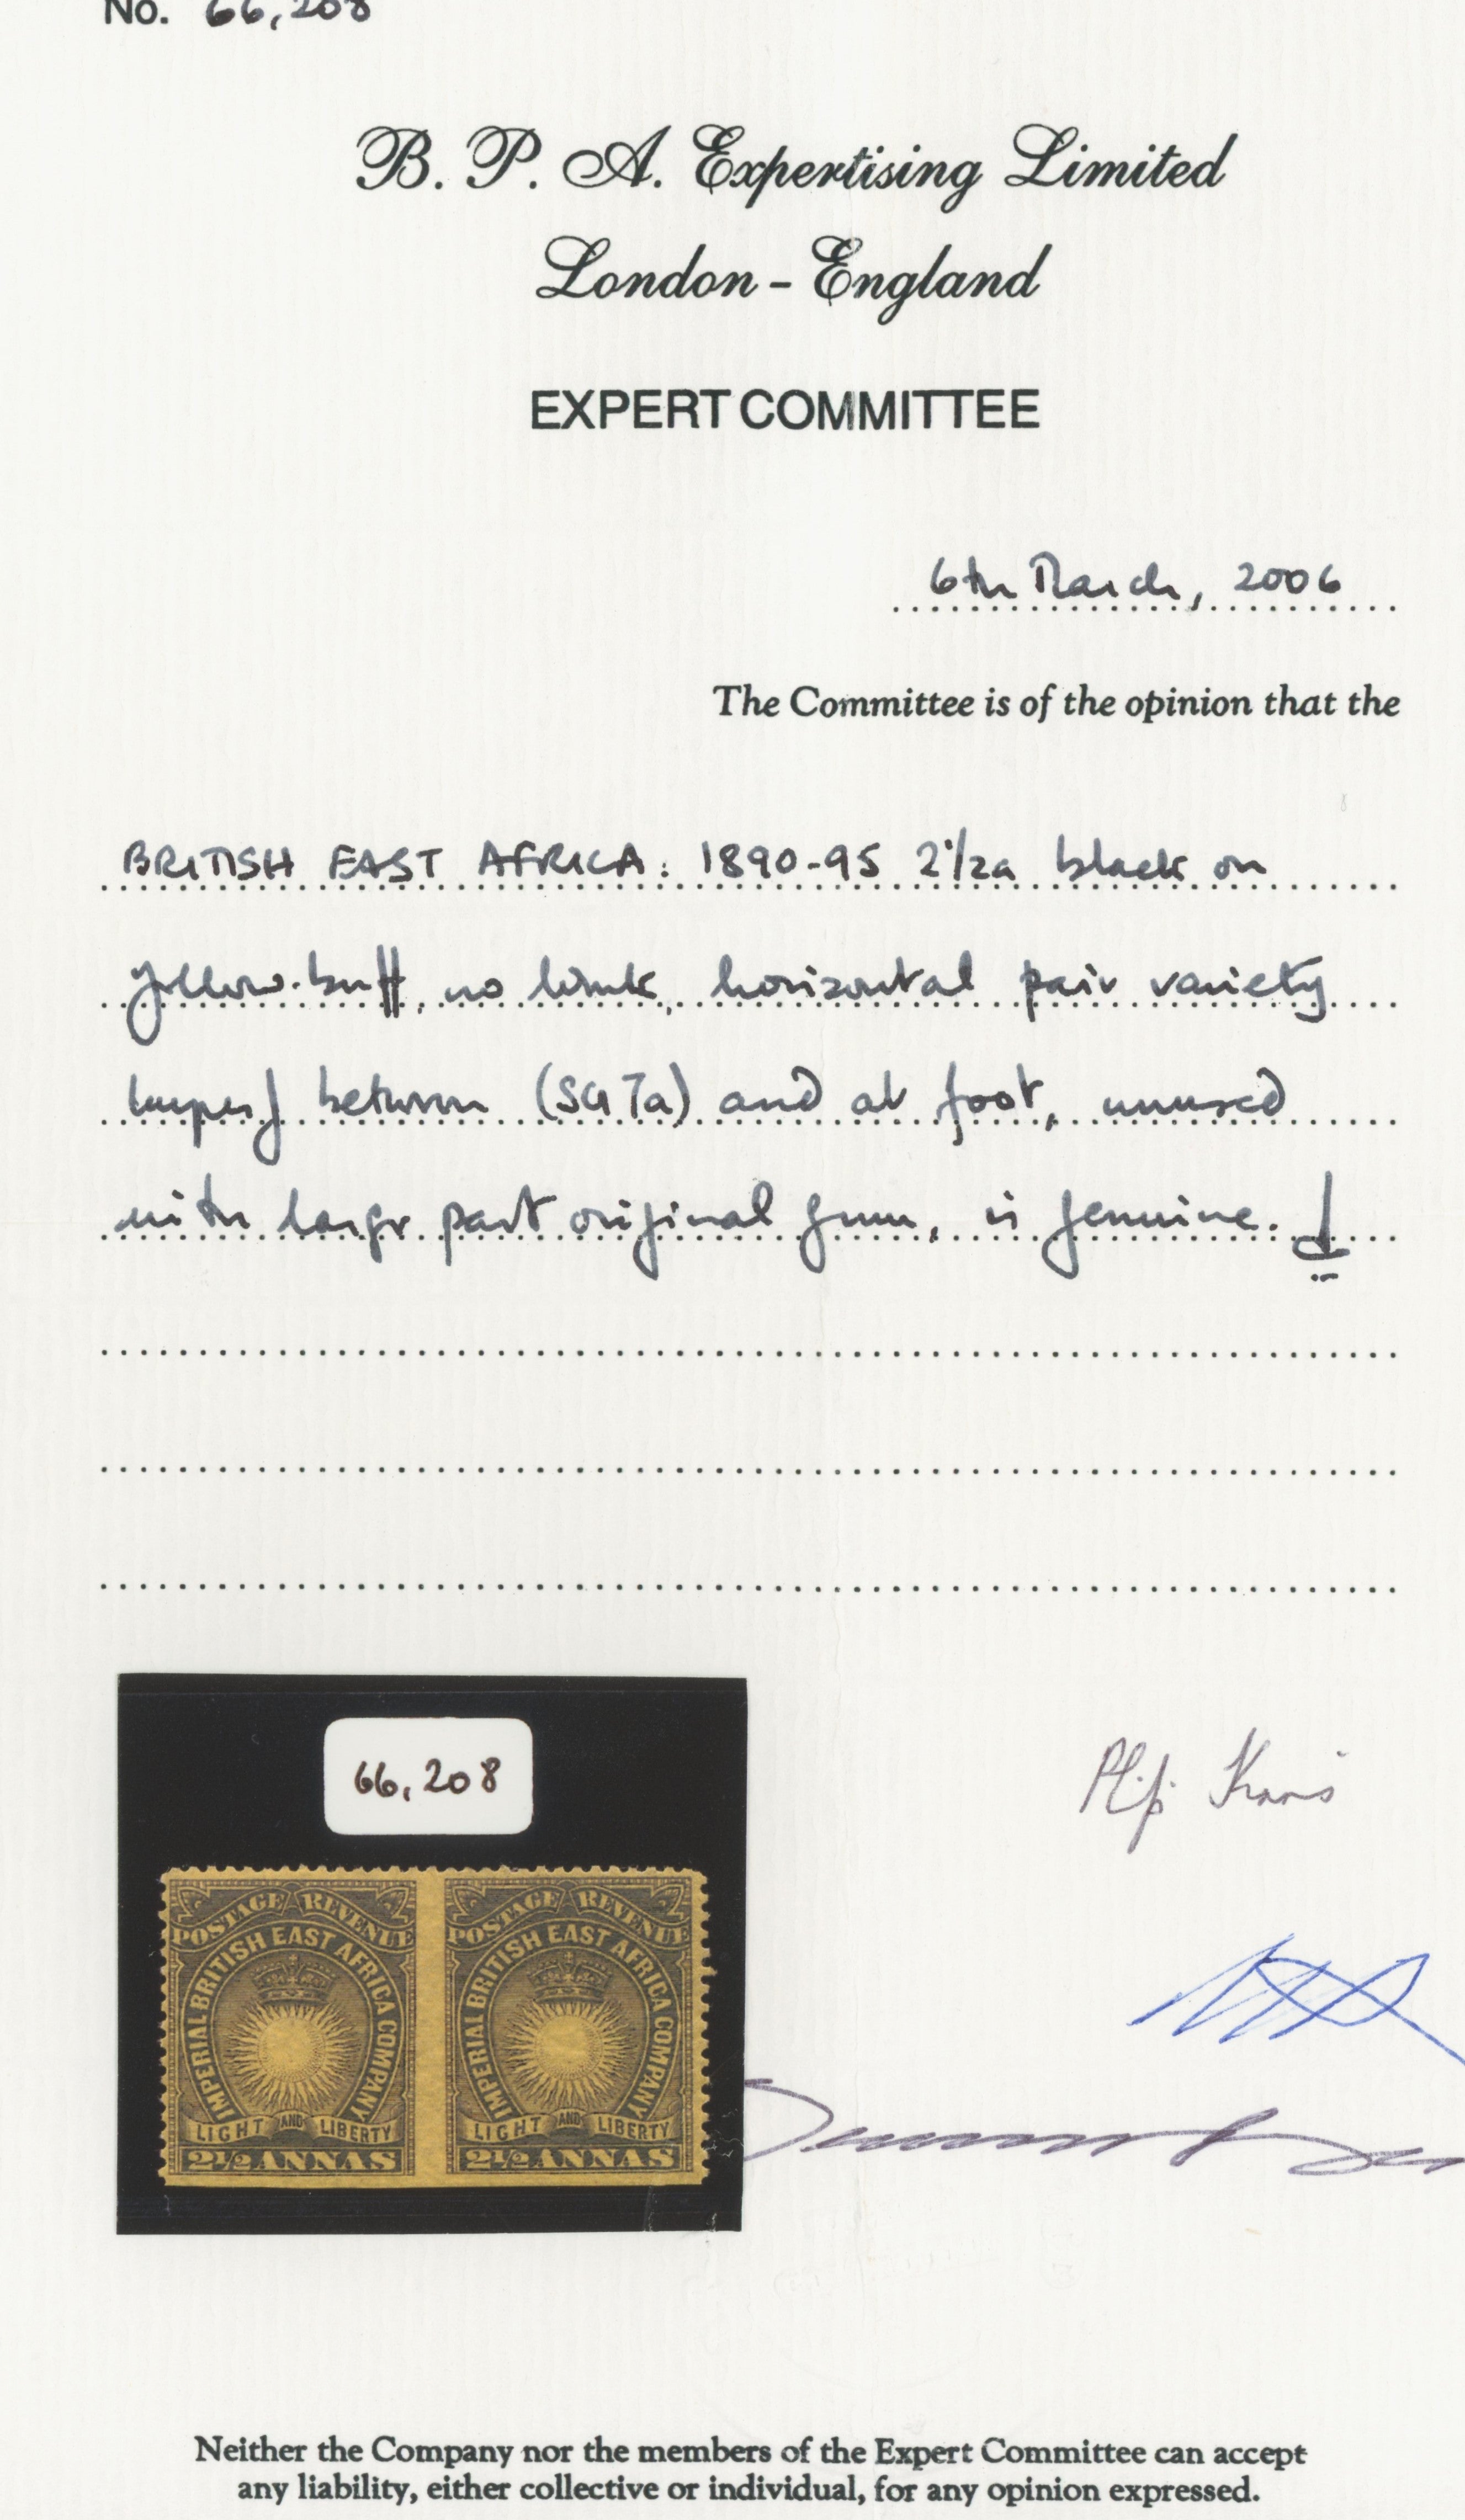 No. 66,208
B. P. A. Expertising Limited
London - England
EXPERT COMMITTEE
6th March, 2006
The Committee is of the opinion that the
BRITISH EAST AFRICA: 1890-95 2½a black on
yellow-buff, no wmk, horizontal pair variety
imperf between (SG 7a) and at foot, unused
with large part original gum, is genuine.
66,208
POSTAGE REVENUE POSTAGE REVENUE
IMPERIAL BRITISH EAST AFRICA COMPANY IMPERIAL BRITISH EAST AFRICA COMPANY
LIGHT AND LIBERTY LIGHT AND LIBERTY
2½ ANNAS 2½ ANNAS
Neither the Company nor the members of the Expert Committee can accept
any liability, either collective or individual, for any opinion expressed.